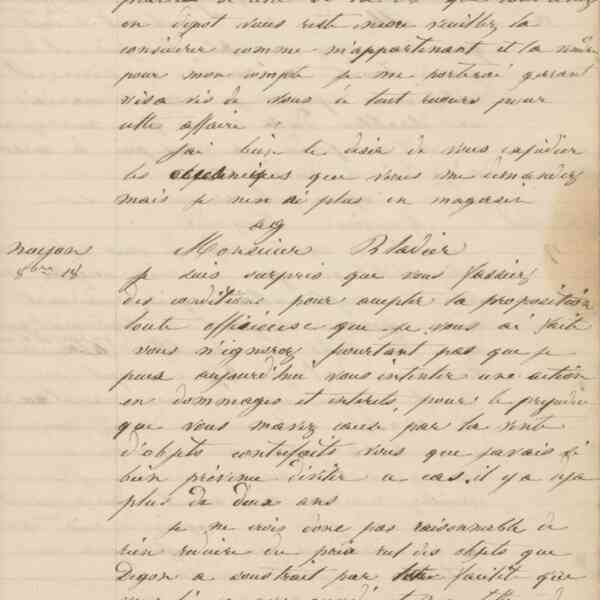 en dépot vous reste encore veuillez la
considérer comme m'appartenant et la
pour mon compte je me porterai garrant
visa vis de vous de tout recours pour
cette affaire
J'ai bien le désir de vous expédier
les que vous me demandez
mais je n'en ai plus en magasin
Noyon
Monsieur Bladier
Je suis surpris que vous fassiez
des conditions pour accepter la proposition
toute officieuse que je vous ai faite
vous n'ignorez pourtant pas que je
puis aujourd'hui vous intenter une action
en dommages et interets, pour le prejudice
que vous m'avez causé par la vente
d'objets contrefaits vous que j'avais
bien prévenu d'éviter ce cas, il y a déja
plus de deux ans
Je me crois donc pas raisonnable de
rien réduire du prix net des objets que
Degon a soustrait par que